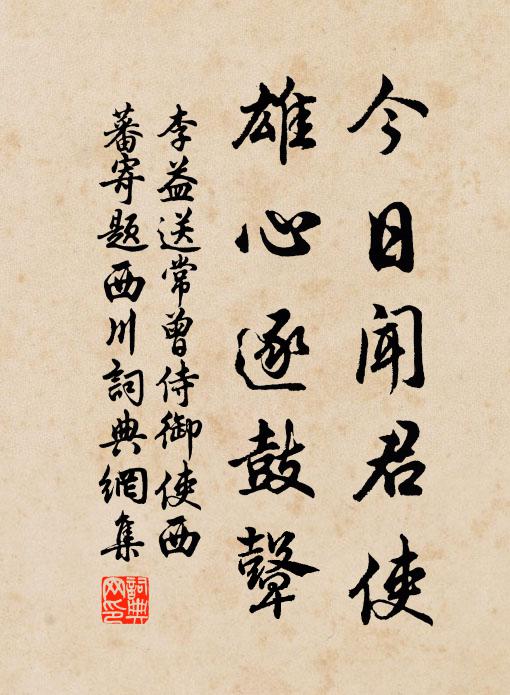 今日闻君使
雄心逐鼓鼙
李益送常曾侍御使西
蕃寄题西川詞典網集
詞典網印